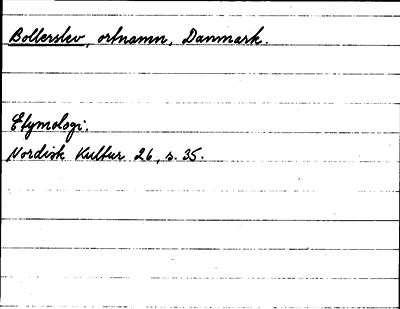 Bollerslev, ortnamn, Danmark.
Etymologi.
Nordisk Kultur 26, s. 35.